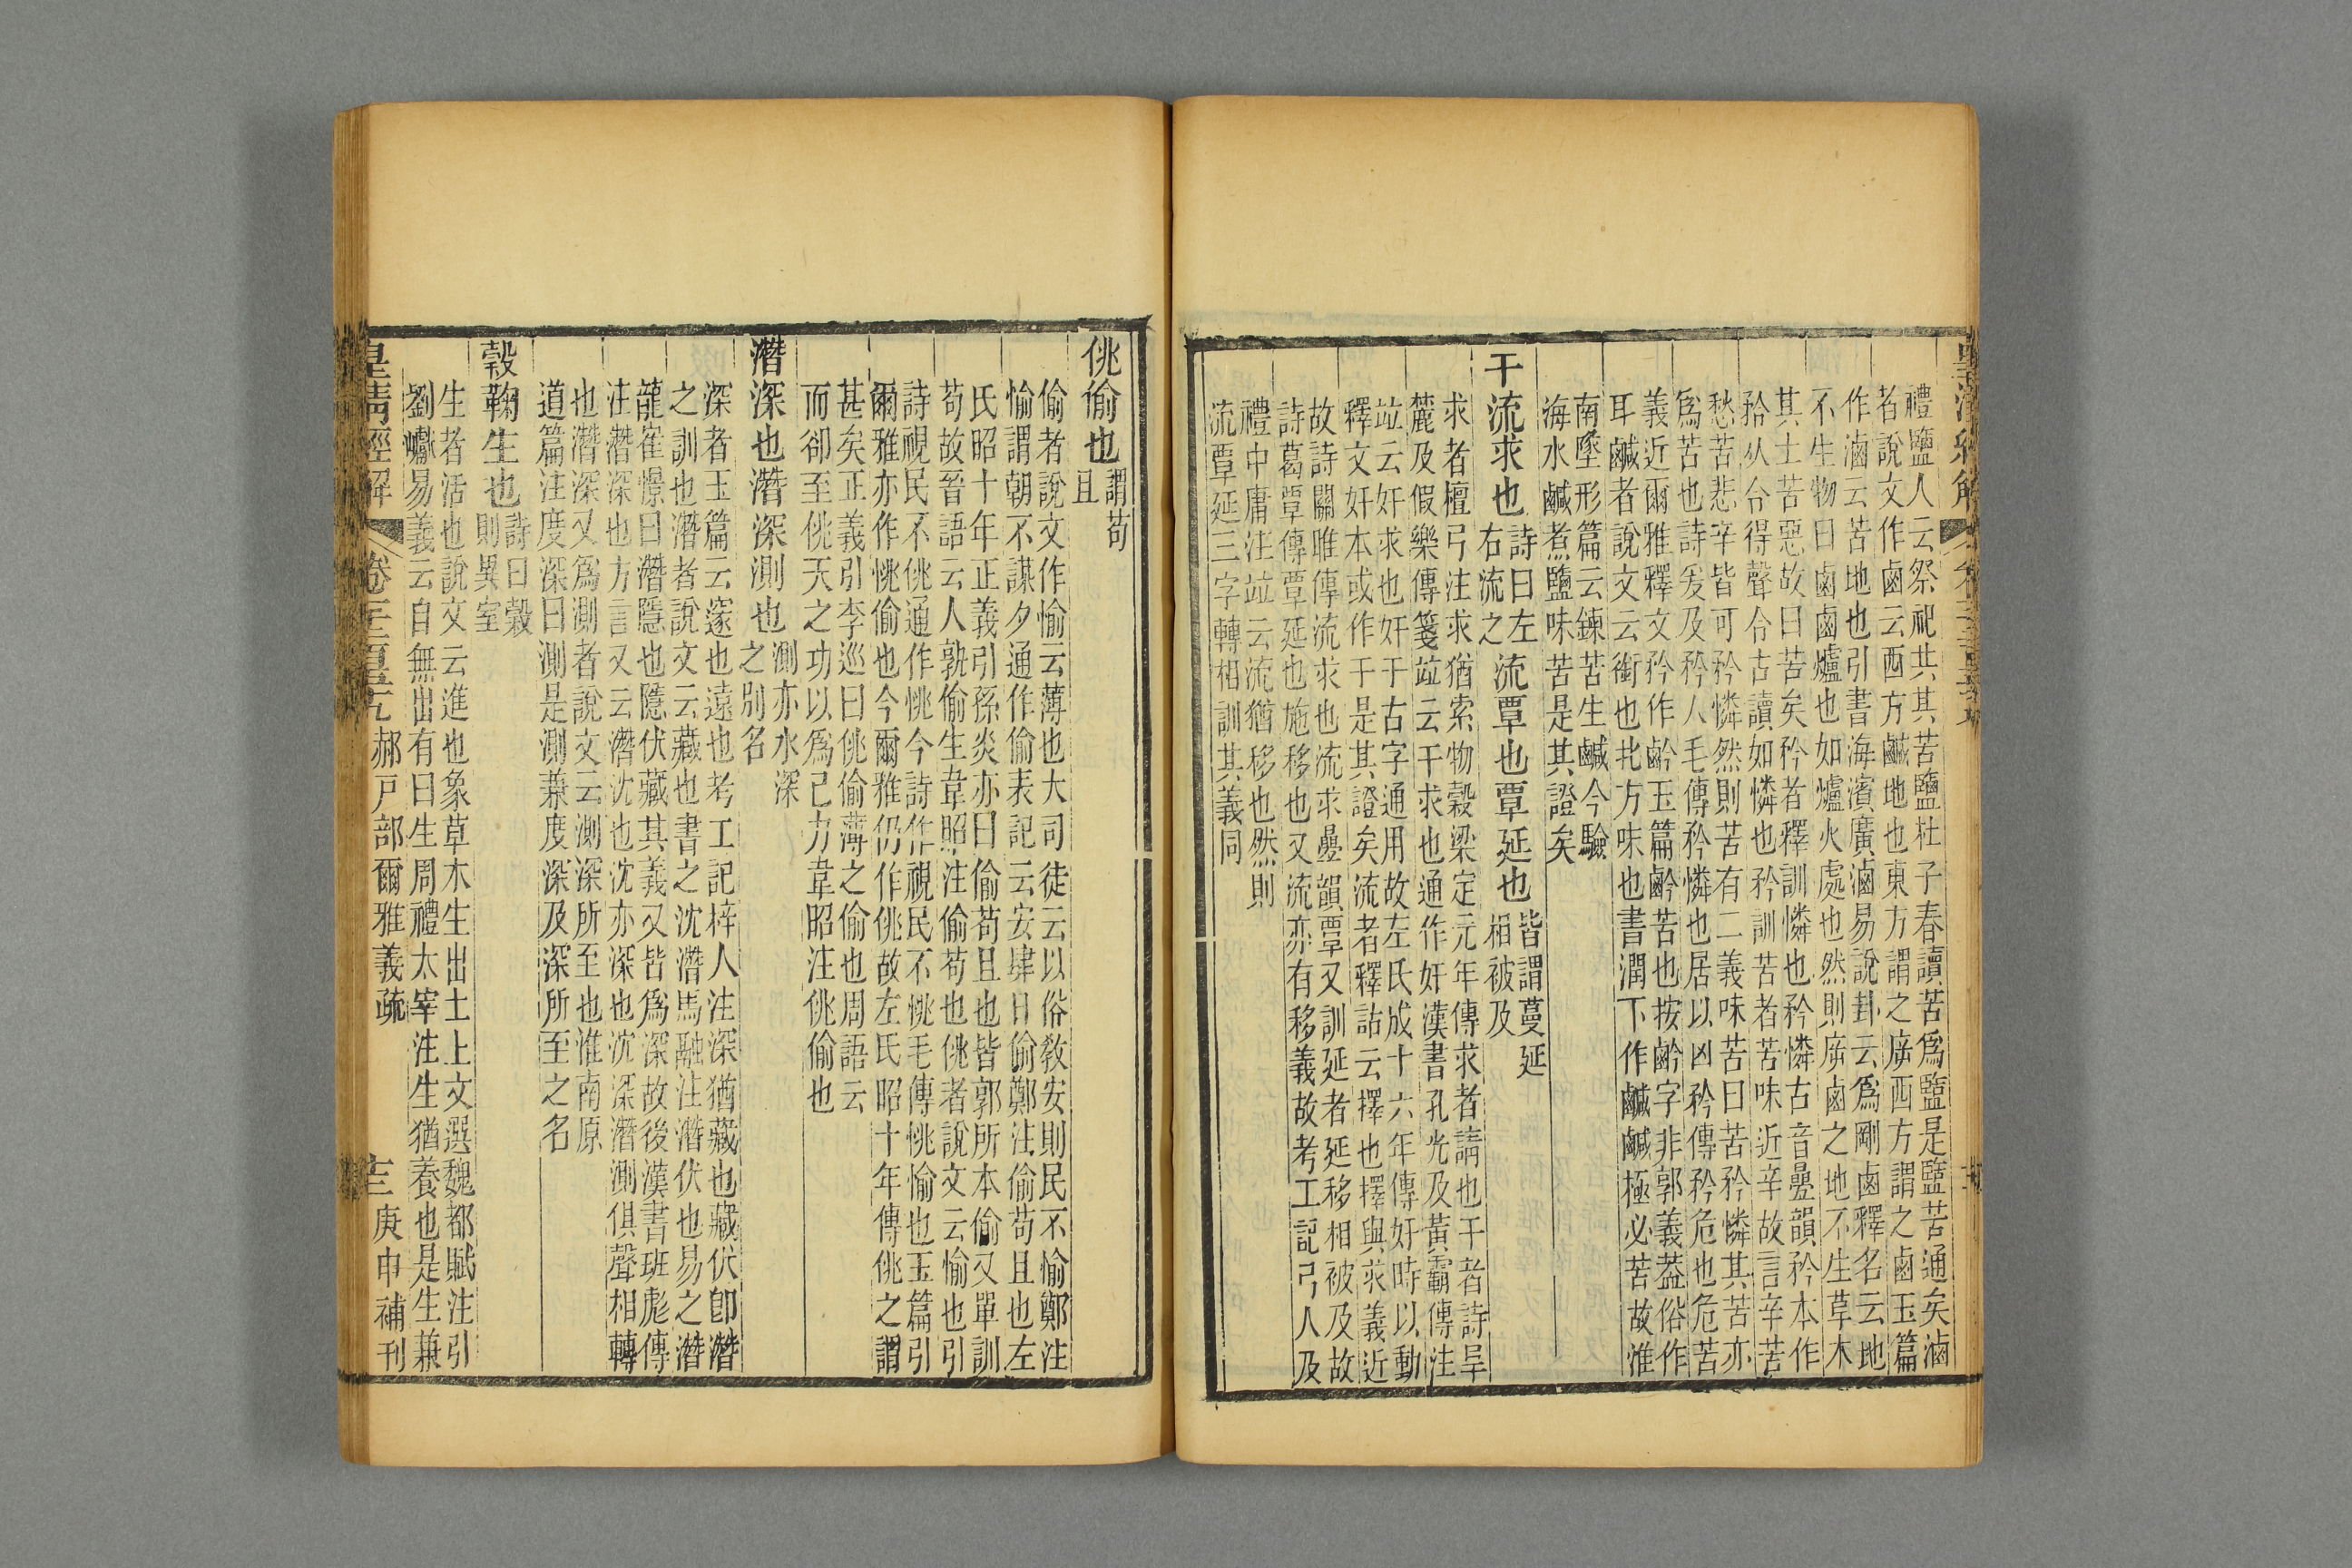 禮鹽人云祭祀共其苦鹽杜子春讀苦爲鹽是鹽苦通矣滷
者說文作鹵云西方鹹地也東方謂之㡿西方謂之鹵玉篇
作滷云苦地也引書海濱廣滷易說卦云爲剛鹵釋名云地
不生物曰鹵鹵爐也如爐火處也然則㡿鹵之地不生草木
其土苦惡故曰苦矣矜者釋訓憐也矜憐古音疊韻矜本作
矝从令得聲令古讀如憐也矜訓苦者苦味近辛故言辛苦
愁苦悲辛皆可矜憐然則苦有二義味苦曰苦矜憐其苦亦
爲苦也詩爰及矜人毛傳矜憐也居以凶矜傳矜危也危苦
義近爾雅釋文矜作齡玉篇齡苦也按齡字非郭義葢俗作
耳鹹者說文云銜也北方味也書潤下作鹹鹹極必苦故淮
南墬形篇云鍊苦生鹹今驗
海水鹹煮鹽味苦是其證矣
干流求也詩曰左右流之流覃也覃延也皆謂蔓延相被及
求者檀弓注求猶索物穀梁定元年傳求者請也干者詩旱
麓及假樂傳箋竝云干求也通作奸漢書孔光及黃霸傳注
竝云奸求也奸干古字通用故左氏成十六年傳奸時以動
釋文奸本或作干是其證矣流者釋詁云擇也擇與求義近
故詩關雎傳流求也流求疊韻覃又訓延者延移相被及故
詩葛覃傳覃延也施移也又流亦有移義故考工記弓人及
禮中庸注竝云流猶移也然則
流覃延三字轉相訓其義同
佻偷也謂苟且
偷者說文作愉云薄也大司徒云以俗教安則民不愉鄭注
愉謂朝不謀夕通作偷表記云安肆日偷鄭注偷苟且也左
氏昭十年正義引孫炎亦曰偷苟且也皆郭所本偷又單訓
苟故晉語云人孰偷生韋昭注偷苟也佻者說文云愉也引
詩視民不佻通作恌今詩作視民不恌毛傳恌愉也玉篇引
爾雅亦作恌偷也今爾雅仍作佻故左氏昭十年傳佻之謂
甚矣正義引李巡曰佻偷薄之偷也周語云
而卻至佻天之功以爲己力韋昭注佻偷也
潛深也潛深測也測亦水深之別名
深者玉篇云邃也遠也考工記梓人注深猶藏也藏伏卽潛
之訓也潛者說文云藏也書之沈潛馬融注潛伏也易之潛
龍崔憬曰潛隱也隱伏藏其義又皆爲深故後漢書班彪傳
注潛深也方言又云潛沈也沈亦深也沈深潛測俱聲相轉
也潛深又爲測者說文云測深所至也淮南原
道篇注度深曰測是測兼度深及深所至之名
穀鞠生也詩曰穀則異室
生者活也說文云進也象草木生出土上文選魏都賦注引
劉巘易義云自無出有曰生周禮太宰注生猶養也是生兼
皇淸經解 卷千二百五十九 郝戶部爾雅義疏 十三 庚申補刊